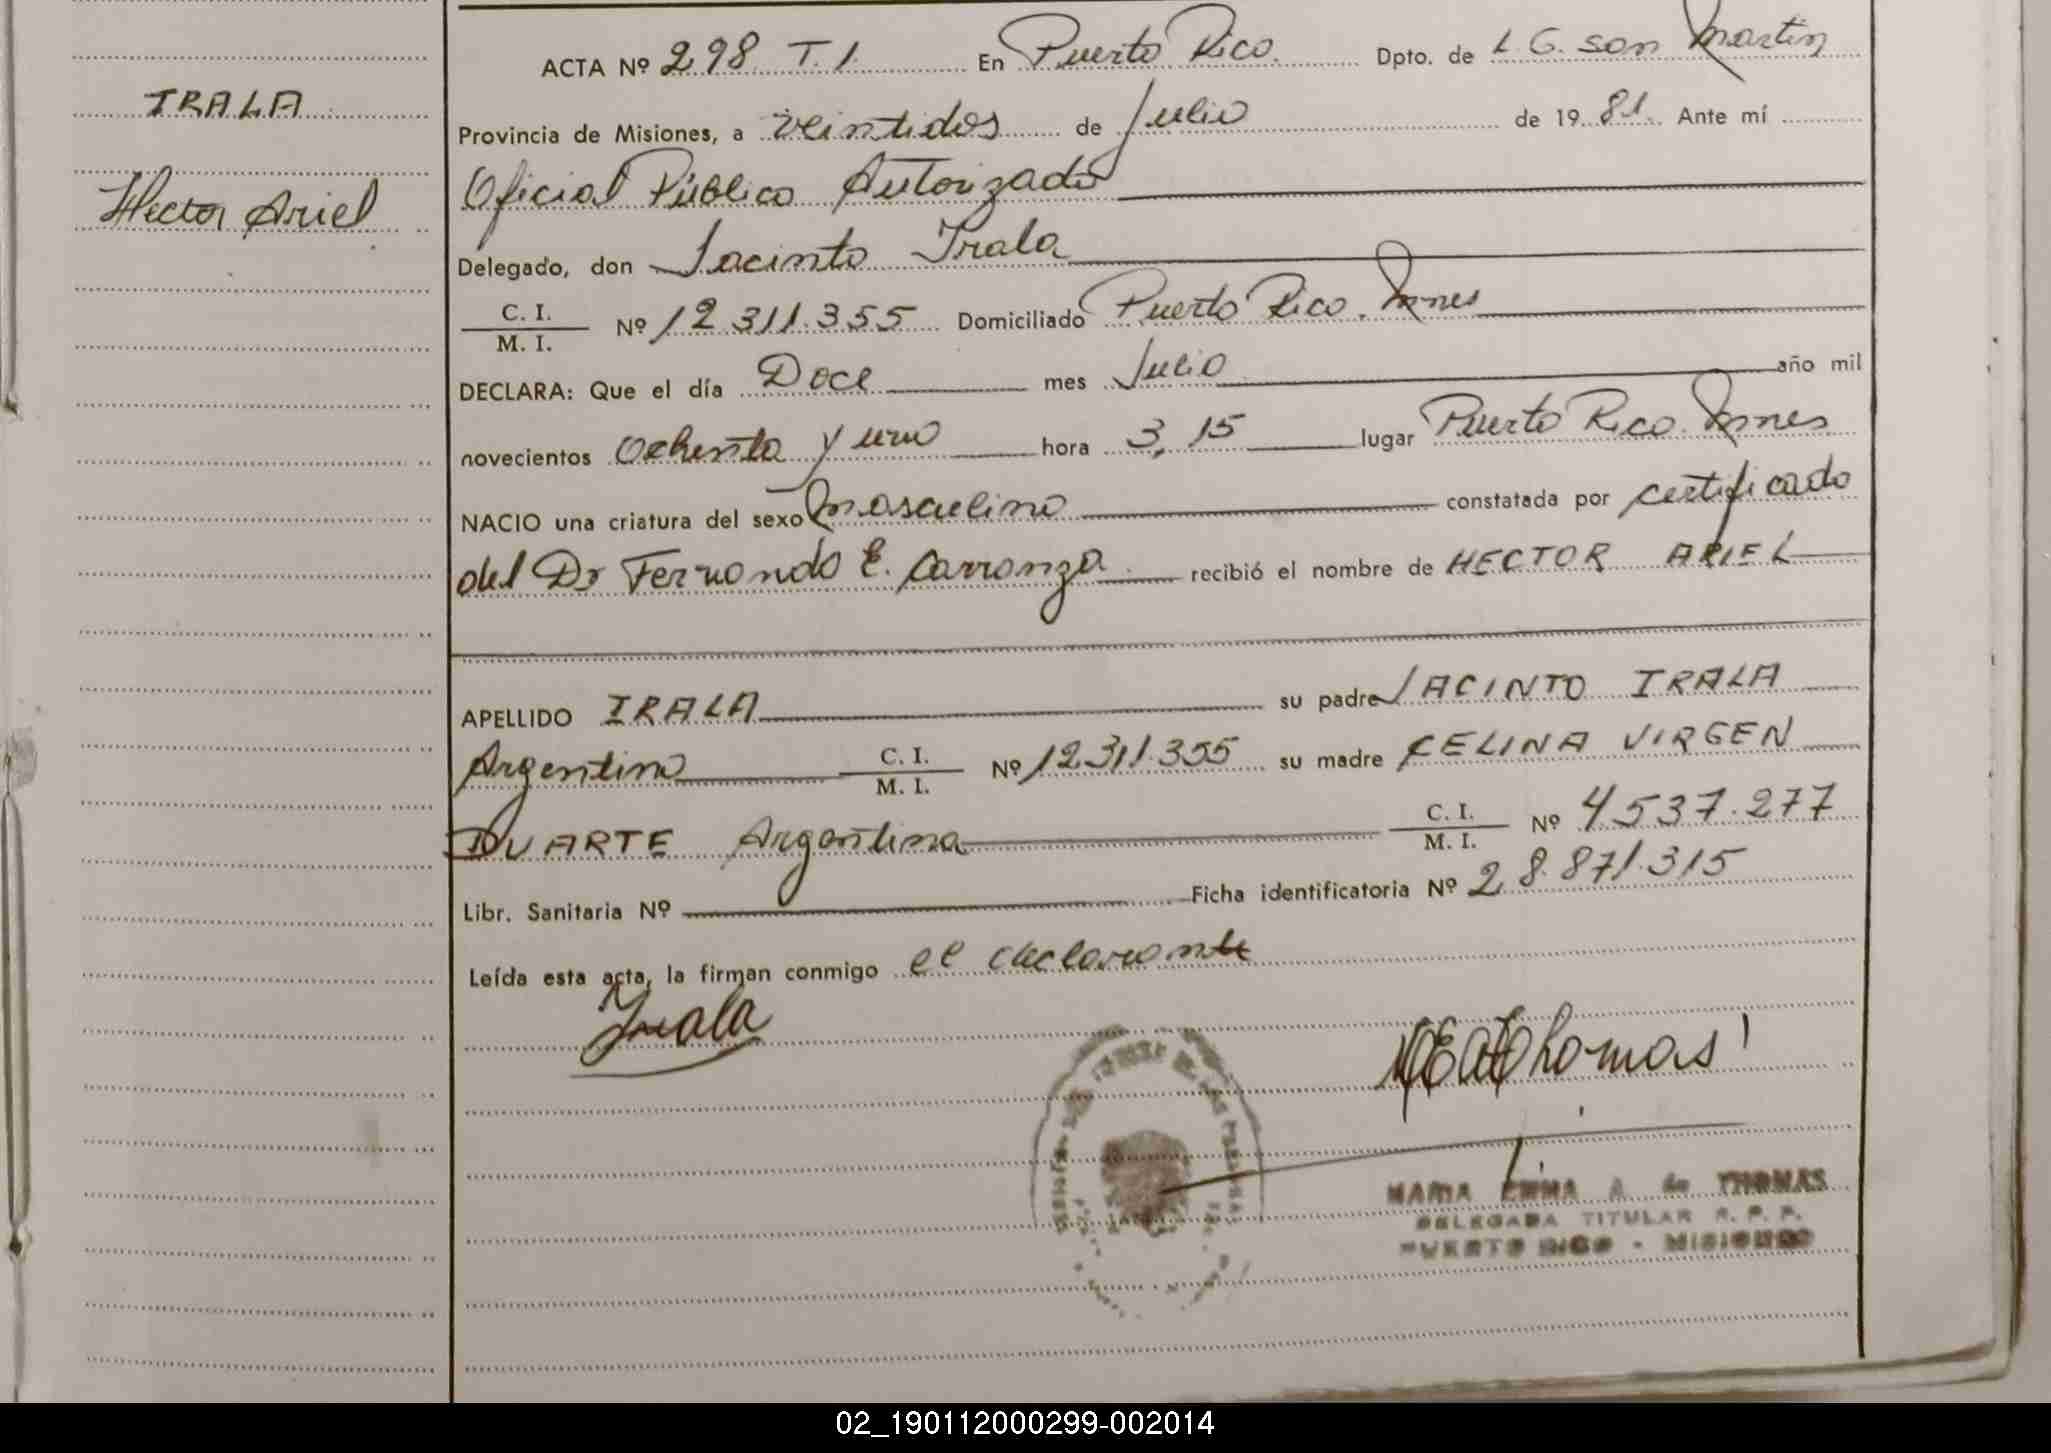 IRALA
Hector Ariel
ACTA Nº 298 T. 1. En Puerto Rico. Dpto. de L. G. San Martin
Provincia de Misiones, a veintidos de Julio de 1981. Ante mí
Oficial Público Autorizado
Delegado, don Jacinto Irala
C. I.
M. I. Nº 12.311.355 Domiciliado Puerto Rico. Mnes
DECLARA: Que el día Doce mes Julio año mil
novecientos Ochenta y uno hora 3,15 lugar Puerto Rico. Mnes
NACIO una criatura del sexo masculino constatada por certificado
del Dr Fernando E. Carranza. recibió el nombre de HECTOR ARIEL
APELLIDO IRALA su padre JACINTO IRALA
Argentino C. I.
M. I. Nº 12.311.355 su madre CELINA VIRGEN
DUARTE Argentina C. I.
M. I. Nº 4.537.277
Libr. Sanitaria Nº Ficha identificatoria Nº 28.871.315
Leída esta acta, la firman conmigo el declarante
Irala
Thomas
MARIA EMMA A. de THOMAS
DELEGADA TITULAR R. P. P.
PUERTO RICO - MISIONES
02_190112000299-002014